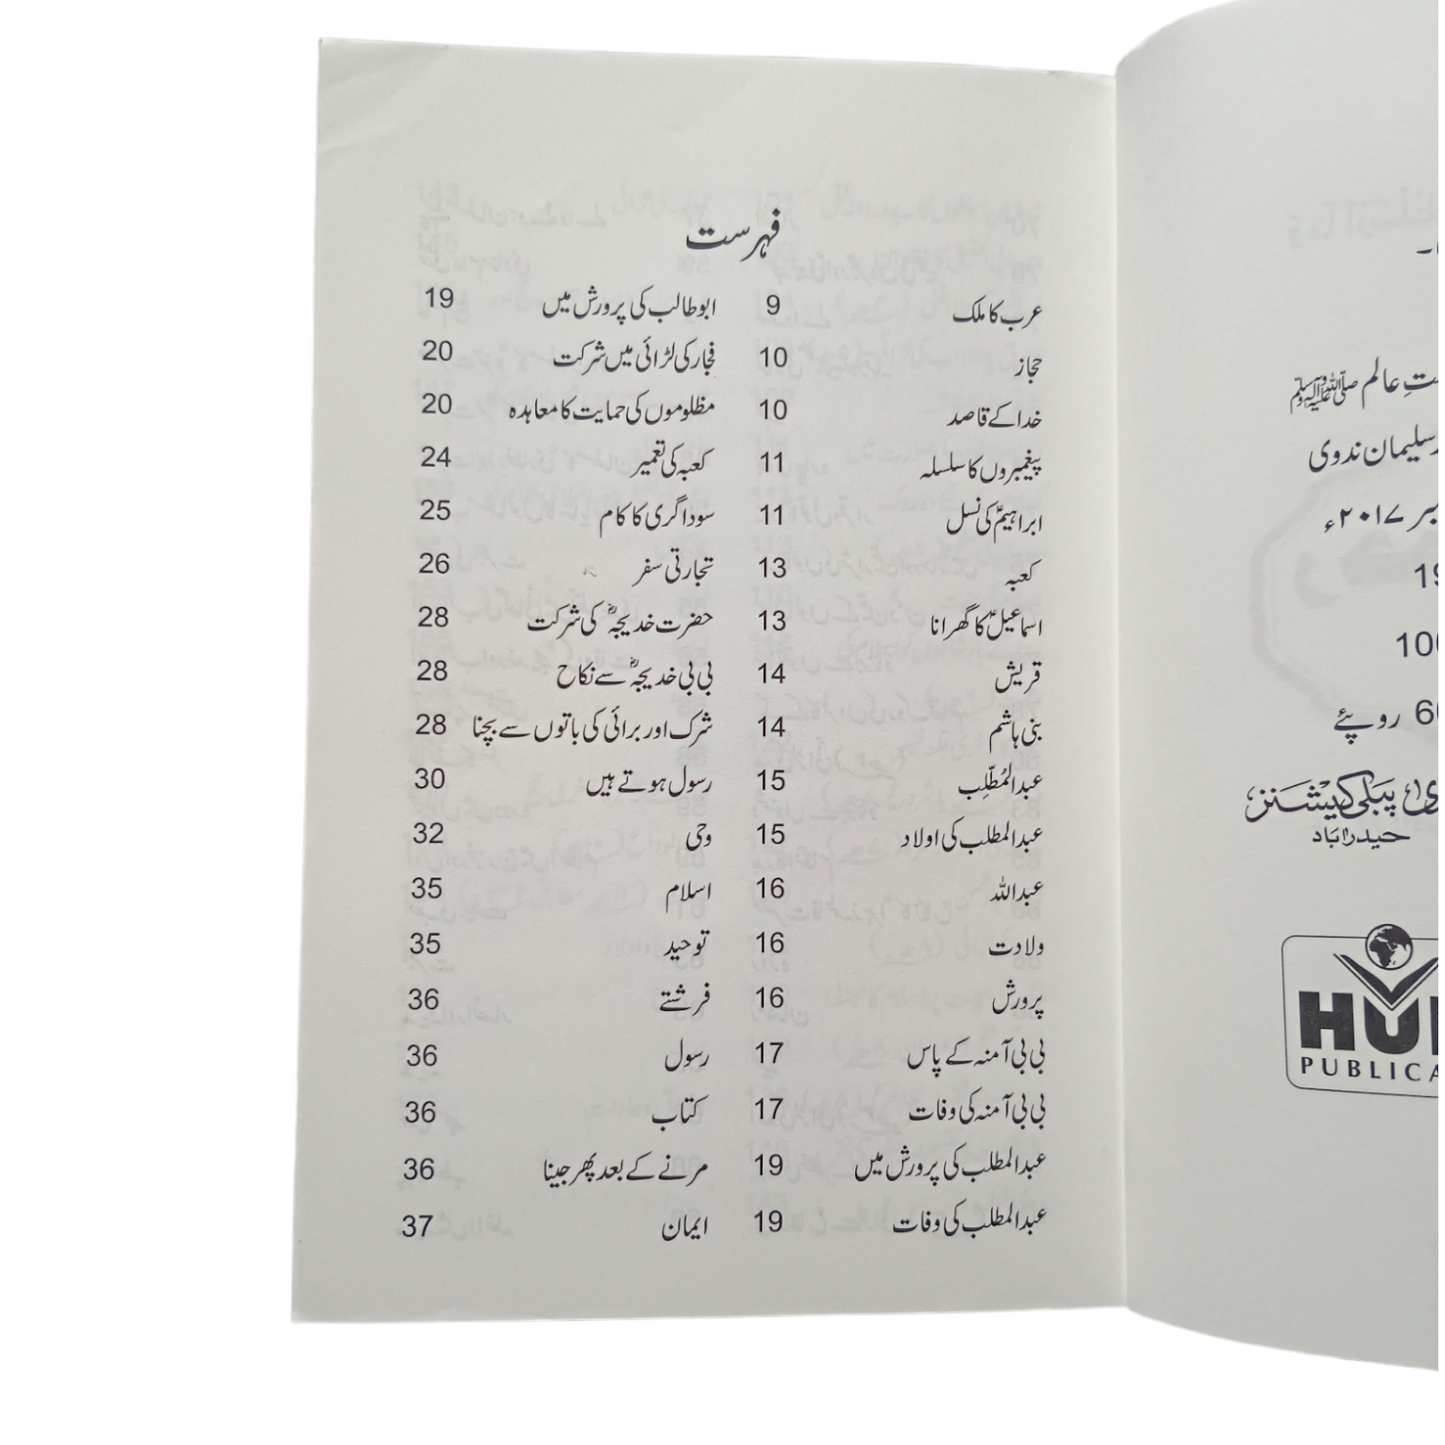 فہرست
عرب کا ملک 9
حجاز 10
خدا کے قاصد 10
پیغمبروں کا سلسلہ 11
ابراہیمؑ کی نسل 11
کعبہ 13
اسماعیلؑ کا گھرانا 13
قریش 14
بنی ہاشم 14
عبدالمُطّلِب 15
عبدالمطلب کی اولاد 15
عبداللہ 16
ولادت 16
پرورش 16
بی بی آمنہ کے پاس 17
بی بی آمنہ کی وفات 17
عبدالمطلب کی پرورش میں 19
عبدالمطلب کی وفات 19
ابوطالب کی پرورش میں 19
فجار کی لڑائی میں شرکت 20
مظلوموں کی حمایت کا معاہدہ 20
کعبہ کی تعمیر 24
سوداگری کا کام 25
تجارتی سفر 26
حضرت خدیجہؓ کی شرکت 28
بی بی خدیجہؓ سے نکاح 28
شرک اور برائی کی باتوں سے بچنا 28
رسول ہوتے ہیں 30
وحی 32
اسلام 35
توحید 35
فرشتے 36
رسول 36
کتاب 36
مرنے کے بعد پھر جینا 36
ایمان 37
عالم ﷺ
سلیمان ندوی
۲۰۱۷ء
روپئے
پبلی کیشنز
حیدرآباد